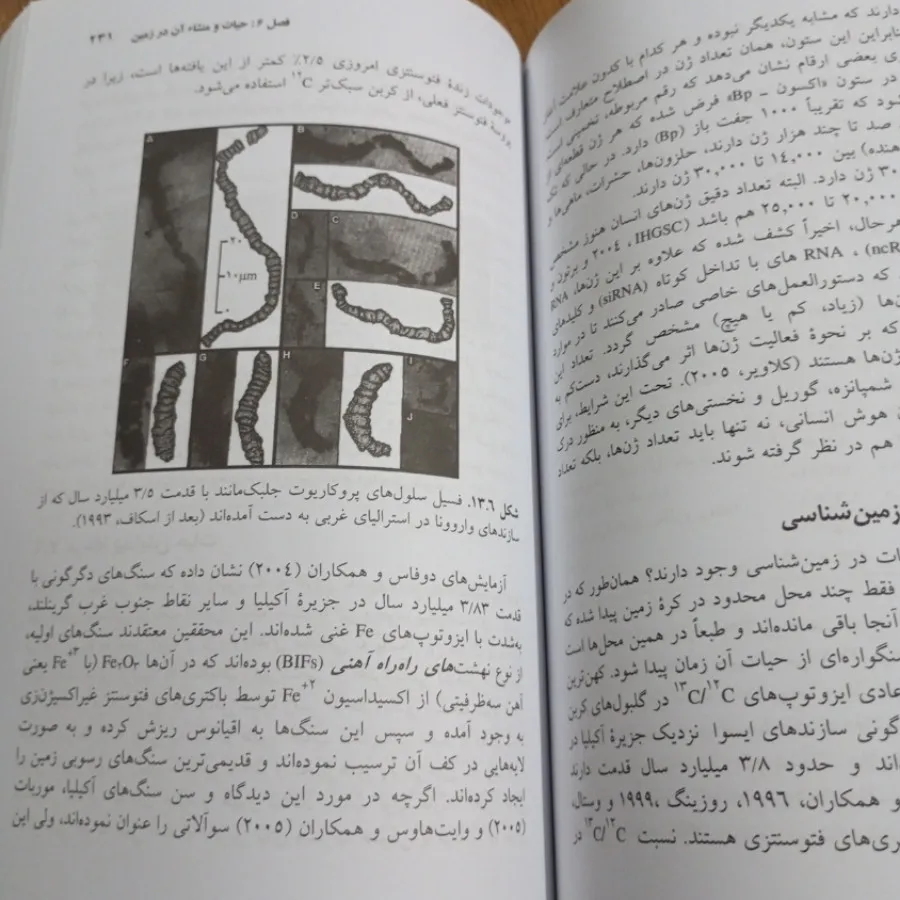 دارند که مشابه یکدیگر نبوده و هر کدام با کدون علامت
بنابراین این ستون، همان تعداد ژن در اصطلاح متعارف است
ی بعضی ارقام نشان می‌دهد که رقم مربوطه، تخمینی است
در ستون «اکسون – Bp» فرض شده که هر ژن قطعه‌ای از
شود که تقریباً ۱۰۰۰ جفت باز (Bp) دارد. در حالی که تک
صد تا چند هزار ژن دارند، حلزون‌ها، حشرات، ماهی‌ها و
هنده) بین ۱۴,۰۰۰ تا ۳۰,۰۰۰ ژن دارند.
۳۰ ژن دارد. البته تعداد دقیق ژن‌های انسان هنوز مشخص
۲۰,۰۰۰ تا ۲۵,۰۰۰ هم باشد (IHGSC، ۲۰۰۴ و برتون و
هرحال، اخیراً کشف شده که علاوه بر این ژن‌ها، RNA
(ncR، RNA های با تداخل کوتاه (siRNA) و کلیدهای
که دستورالعمل‌های خاصی صادر می‌کنند تا در موارد
ن‌ها (زیاد، کم یا هیچ) مشخص گردد. تعداد این
که بر نحوهٔ فعالیت ژن‌ها اثر می‌گذارند، دست‌کم به
ژن‌ها هستند (کلاویر، ۲۰۰۵). تحت این شرایط، برای
شمپانزه، گوریل و نخستی‌های دیگر، به منظور درک
ن هوش انسانی، نه تنها باید تعداد ژن‌ها، بلکه تعداد
هم در نظر گرفته شوند.
زمین‌شناسی
ات در زمین‌شناسی وجود دارند؟ همان‌طور که در
فقط چند محل محدود در کرهٔ زمین پیدا شده که
آنجا باقی مانده‌اند و طبعاً در همین محل‌ها است
سنگواره‌ای از حیات آن زمان پیدا شود. کهن‌ترین
عادی ایزوتوپ‌های ¹³C/¹²C در گلبول‌های کربن
گونی سازندهای ایسوا نزدیک جزیرهٔ آکیلیا در
اند و حدود ۳/۸ میلیارد سال قدمت دارند
و همکاران، ۱۹۹۶، روزینگ، ۱۹۹۹ و وستال،
ری‌های فتوسنتزی هستند. نسبت ¹³C/¹²C در
فصل ۶: حیات و منشاء آن در زمین ۲۳۱
موجودات زندهٔ فتوسنتزی امروزی ۲/۵٪ کمتر از این یافته‌ها است، زیرا در
پروسهٔ فتوسنتز فعلی، از کربن سبک‌تر ¹²C استفاده می‌شود.
A
B
D
C
20
10 μm
0
E
F
G
H
I
J
شکل ۱۳.۶. فسیل سلول‌های پروکاریوت جلبک‌مانند با قدمت ۳/۵ میلیارد سال که از
سازندهای واروونا در استرالیای غربی به دست آمده‌اند (بعد از اسکاف، ۱۹۹۳).
آزمایش‌های دوفاس و همکاران (۲۰۰۴) نشان داده که سنگ‌های دگرگونی با
قدمت ۳/۸۳ میلیارد سال در جزیرهٔ آکیلیا و سایر نقاط جنوب غرب گرینلند،
به‌شدت با ایزوتوپ‌های Fe غنی شده‌اند. این محققین معتقدند سنگ‌های اولیه،
از نوع نهشت‌های راه‌راه آهنی (BIFs) بوده‌اند که در آن‌ها Fe₂O₃ (با Fe⁺³ یعنی
آهن سه‌ظرفیتی) از اکسیداسیون Fe⁺² توسط باکتری‌های فتوسنتز غیراکسیژن‌زی
به وجود آمده و سپس این سنگ‌ها به اقیانوس ریزش کرده و به صورت
لایه‌هایی در کف آن ترسیب نموده‌اند و قدیمی‌ترین سنگ‌های رسوبی زمین را
ایجاد کرده‌اند. اگرچه در مورد این دیدگاه و سن سنگ‌های آکیلیا، موربات
(۲۰۰۵) و وایت‌هاوس و همکاران (۲۰۰۵) سوآلاتی را عنوان نموده‌اند، ولی این